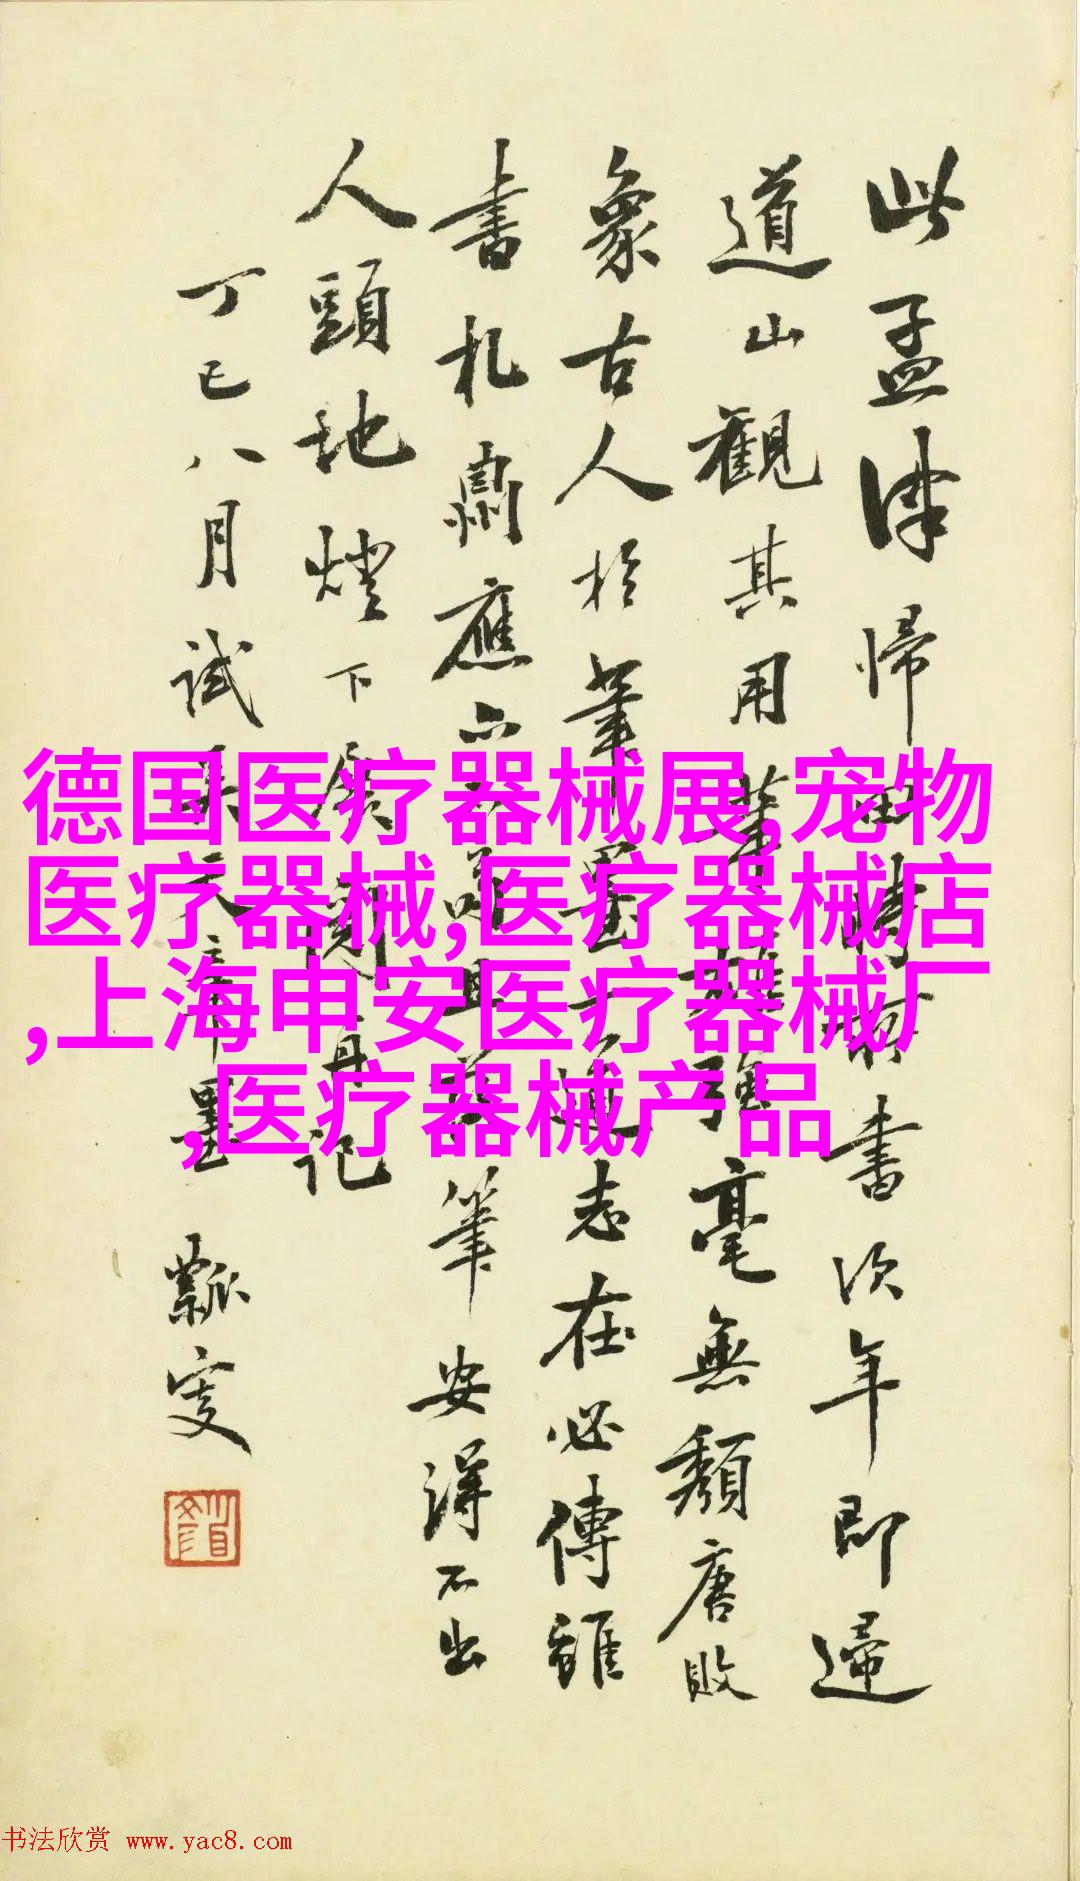 此孟津帰時書次年即歸
道山觀其用強毫無頹唐敗
象古人於筆墨道志在必傳雖
書札應且筆安得不出
人頭地燈下閱記
丁巳八月試天章墨 瓢叟
德国医疗器械展,宠物
医疗器械,医疗器械店
,上海申安医疗器械厂
,医疗器械产品
书法欣赏 www.yac8.com